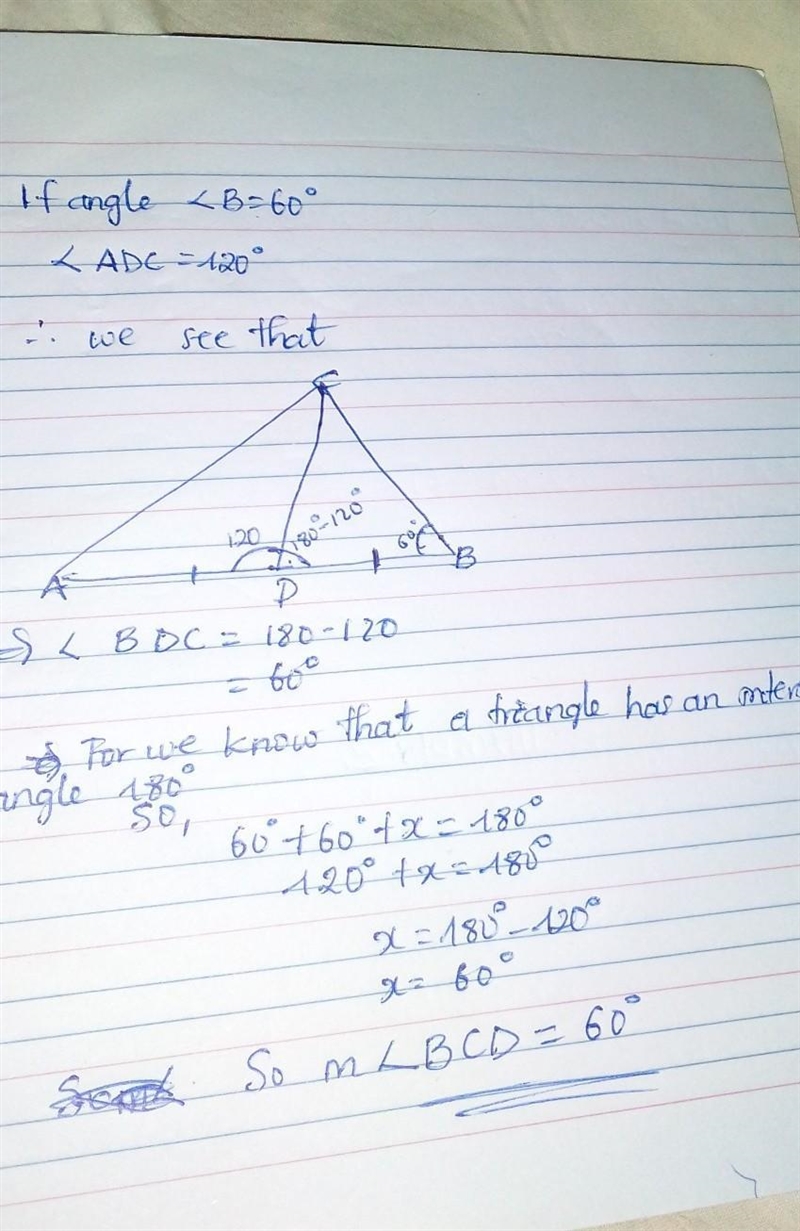 If angle ∠B=60°
∠ADC =120°
∴ we see that
C
120
180°-120°
60°
A
D
B
⇒ ∠ BDC = 180-120
= 60°
For we know that a triangle has an intern
angle 180°
So,
60°+60°+x=180°
120°+x=180°
x=180°-120°
x= 60°
So m∠BCD=60°